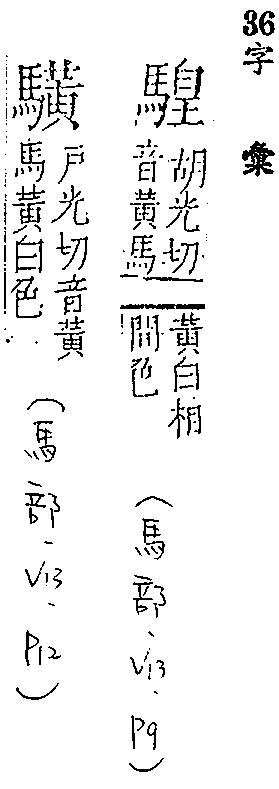 36字彙
騜胡光切音黃馬黃白相間色
(馬部、V13、P9)
驥戶光切音黃馬黃白色
(馬部、V13、P12)